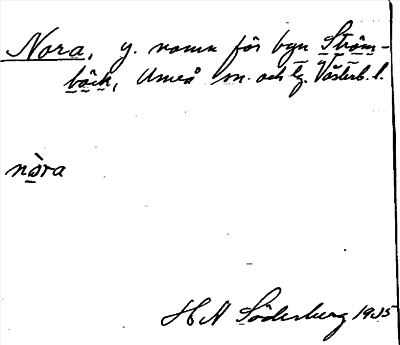 Nora, y. namn för byn Ström-
bäck, Umeå sn. och tg. Västerb. l.
nòra
H A Söderberg 1935